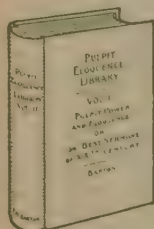 PULPIT
ELOQUENCE
LIBRARY
VOL. I
PULPIT POWER
AND ELOQUENCE
OR
BEST SERMONS
OF 19TH CENTURY
BARTON
PULPIT
ELOQUENCE
LIBRARY
BARTON